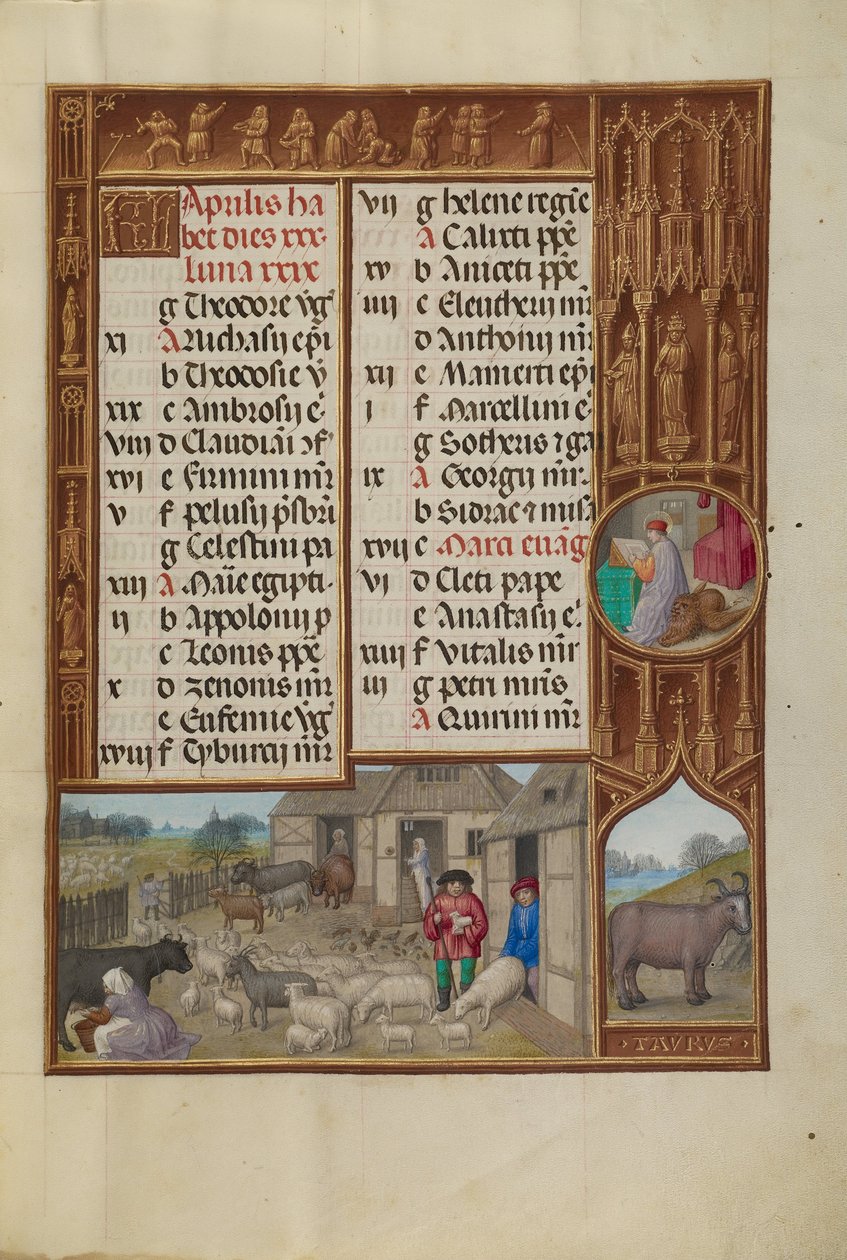 KL Aprilis ha
bet dies xxx.
Luna xxix
g Theodore v̄ḡ
xi A Nichasij ep̄i
b Theodosie v̄
xix c Ambrosij c̄
viii d Claudiāi ↄf̄
xvi e Firmini mr̄
v f pelusij p̄sbr̄i
g Celestini pa
xiii A Maīe egipti.
ij b Appolonij p
c Leonis pp̄e
x d zenonis mr̄
e Eufemie v̄ḡ
xviii f Tyburcij mr̄
vij g helene regīe
A Calixti pp̄e
xv b Aniceti pp̄e
iiij c Eleutherij mr̄
d Anthonij mr̄
xij e Mamerti ep̄i
i f Marcellini c̄
g Sotheris ⁊ ga
ix A Georgij mr̄.
b Sidrac ⁊ misa
xvij c Marci euāg
vi d Cleti pape
e Anastasij c̄.
xiiij f Vitalis mr̄
iij g petri mr̄is
A Quirini mr̄
TAVRVS